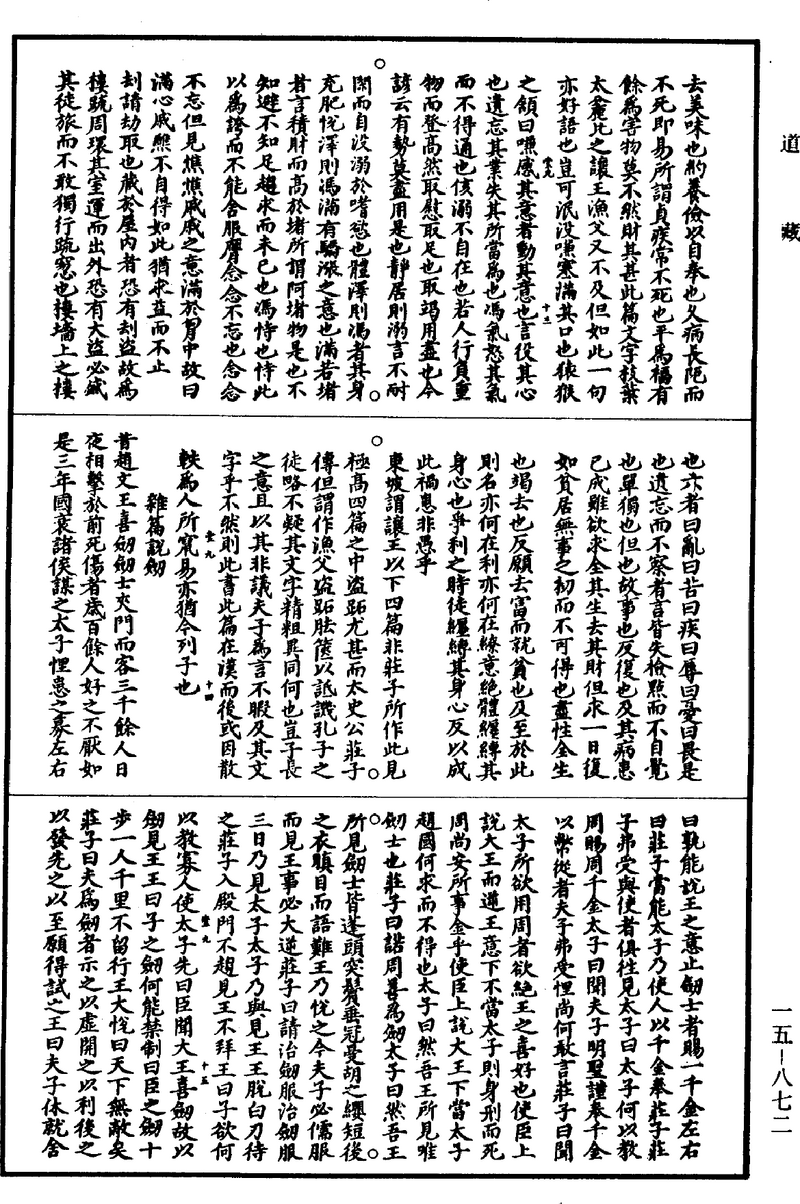 道藏
去美味也約養儉以自奉也久病長阨而
不死即易所謂貞疾常不死也平為福有
餘為害物莫不然財其甚此篇文字枝葉
太麄比之讓王漁父又不及但如此一句
亦好語也豈可泯没嗛塞滿其口也猿猴
之頷曰嗛感其意者動其意也言役其心
也遺忘其業失其所當為也馮氣怒其氣
而不得通也侅溺不自在也若人行負重
物而登高然取慰取足也取竭用盡也今
諺云有勢莫盡用是也靜居則溺言不耐
閑而自没溺於嗜慾也體澤則馮者其身
充肥悅澤則馮滿有驕漲之意也滿若堵
者言積財而高於堵所謂阿堵物是也不
知避不知足趨求而未已也馮恃也恃此
以為誇而不能舍服膺念念不忘也念念
不忘但見憔憔戚戚之意滿於胷中故曰
滿心戚醮不自得如此猶求益而不止
刦請劫取也藏於屋內者恐有刦盜故為
樓䟽周環其室運而出外恐有大盜必鹹
其徒旅而不敢獨行䟽窻也樓墻上之樓
也六者曰亂曰苦曰疾曰辱曰憂曰畏是
也遺忘而不察者言皆失檢點而不自覺
也單獨也但也故事也反復也及其病患
已成雖欲求全其生去其財但求一日復
如貧居無事之初而不可得也盡性全生
也竭去也反願去富而就貧也及至於此
則名亦何在利亦何在繚意絕體纏縛其
身心也爭利之時徒纏縛其身心反以成
此禍患非愚乎
東坡謂讓王以下四篇非莊子所作此見
極高四篇之中盜跖尤甚而太史公莊子
傳但謂作漁父盜跖胠篋以詆譏孔子之
徒略不疑其文字精粗異同何也豈子長
之意且以其非議夫子為言不暇及其文
字乎不然則此書此篇在漢而後或因散
軼為人所竄易亦猶今列子也
雜篇說劒
昔趙文王喜劒劒士夾門而客三千餘人日
夜相擊於前死傷者歲百餘人好之不厭如
是三年國衰諸侯謀之太子悝患之募左右
曰孰能說王之意止劒士者賜一千金左右
曰莊子當能太子乃使人以千金奉莊子莊
子弗受與使者俱往見太子曰太子何以教
周賜周千金太子曰聞夫子明聖謹奉千金
以幣從者夫子弗受悝尚何敢言莊子曰聞
太子所欲用周者欲絕王之喜好也使臣上
說大王而逆王意下不當太子則身刑而死
周尚安所事金乎使臣上說大王下當太子
趙國何求而不得也太子曰然吾王所見唯
劒士也莊子曰諾周善為劒太子曰然吾王
所見劒士皆蓬頭突鬢垂冠曼胡之纓短後
之衣瞋目而語難王乃悅之今夫子必儒服
而見王事必大逆莊子曰請治劒服治劒服
三日乃見太子太子乃與見王王脫白刃待
之莊子入殿門不趨見王不拜王曰子欲何
以教寡人使太子先曰臣聞大王喜劒故以
劒見王王曰子之劒何能禁制曰臣之劒十
步一人千里不留行王大悅曰天下無敵矣
莊子曰夫為劒者示之以虛開之以利後之
以發先之以至願得試之王曰夫子休就舍
一五－八七二